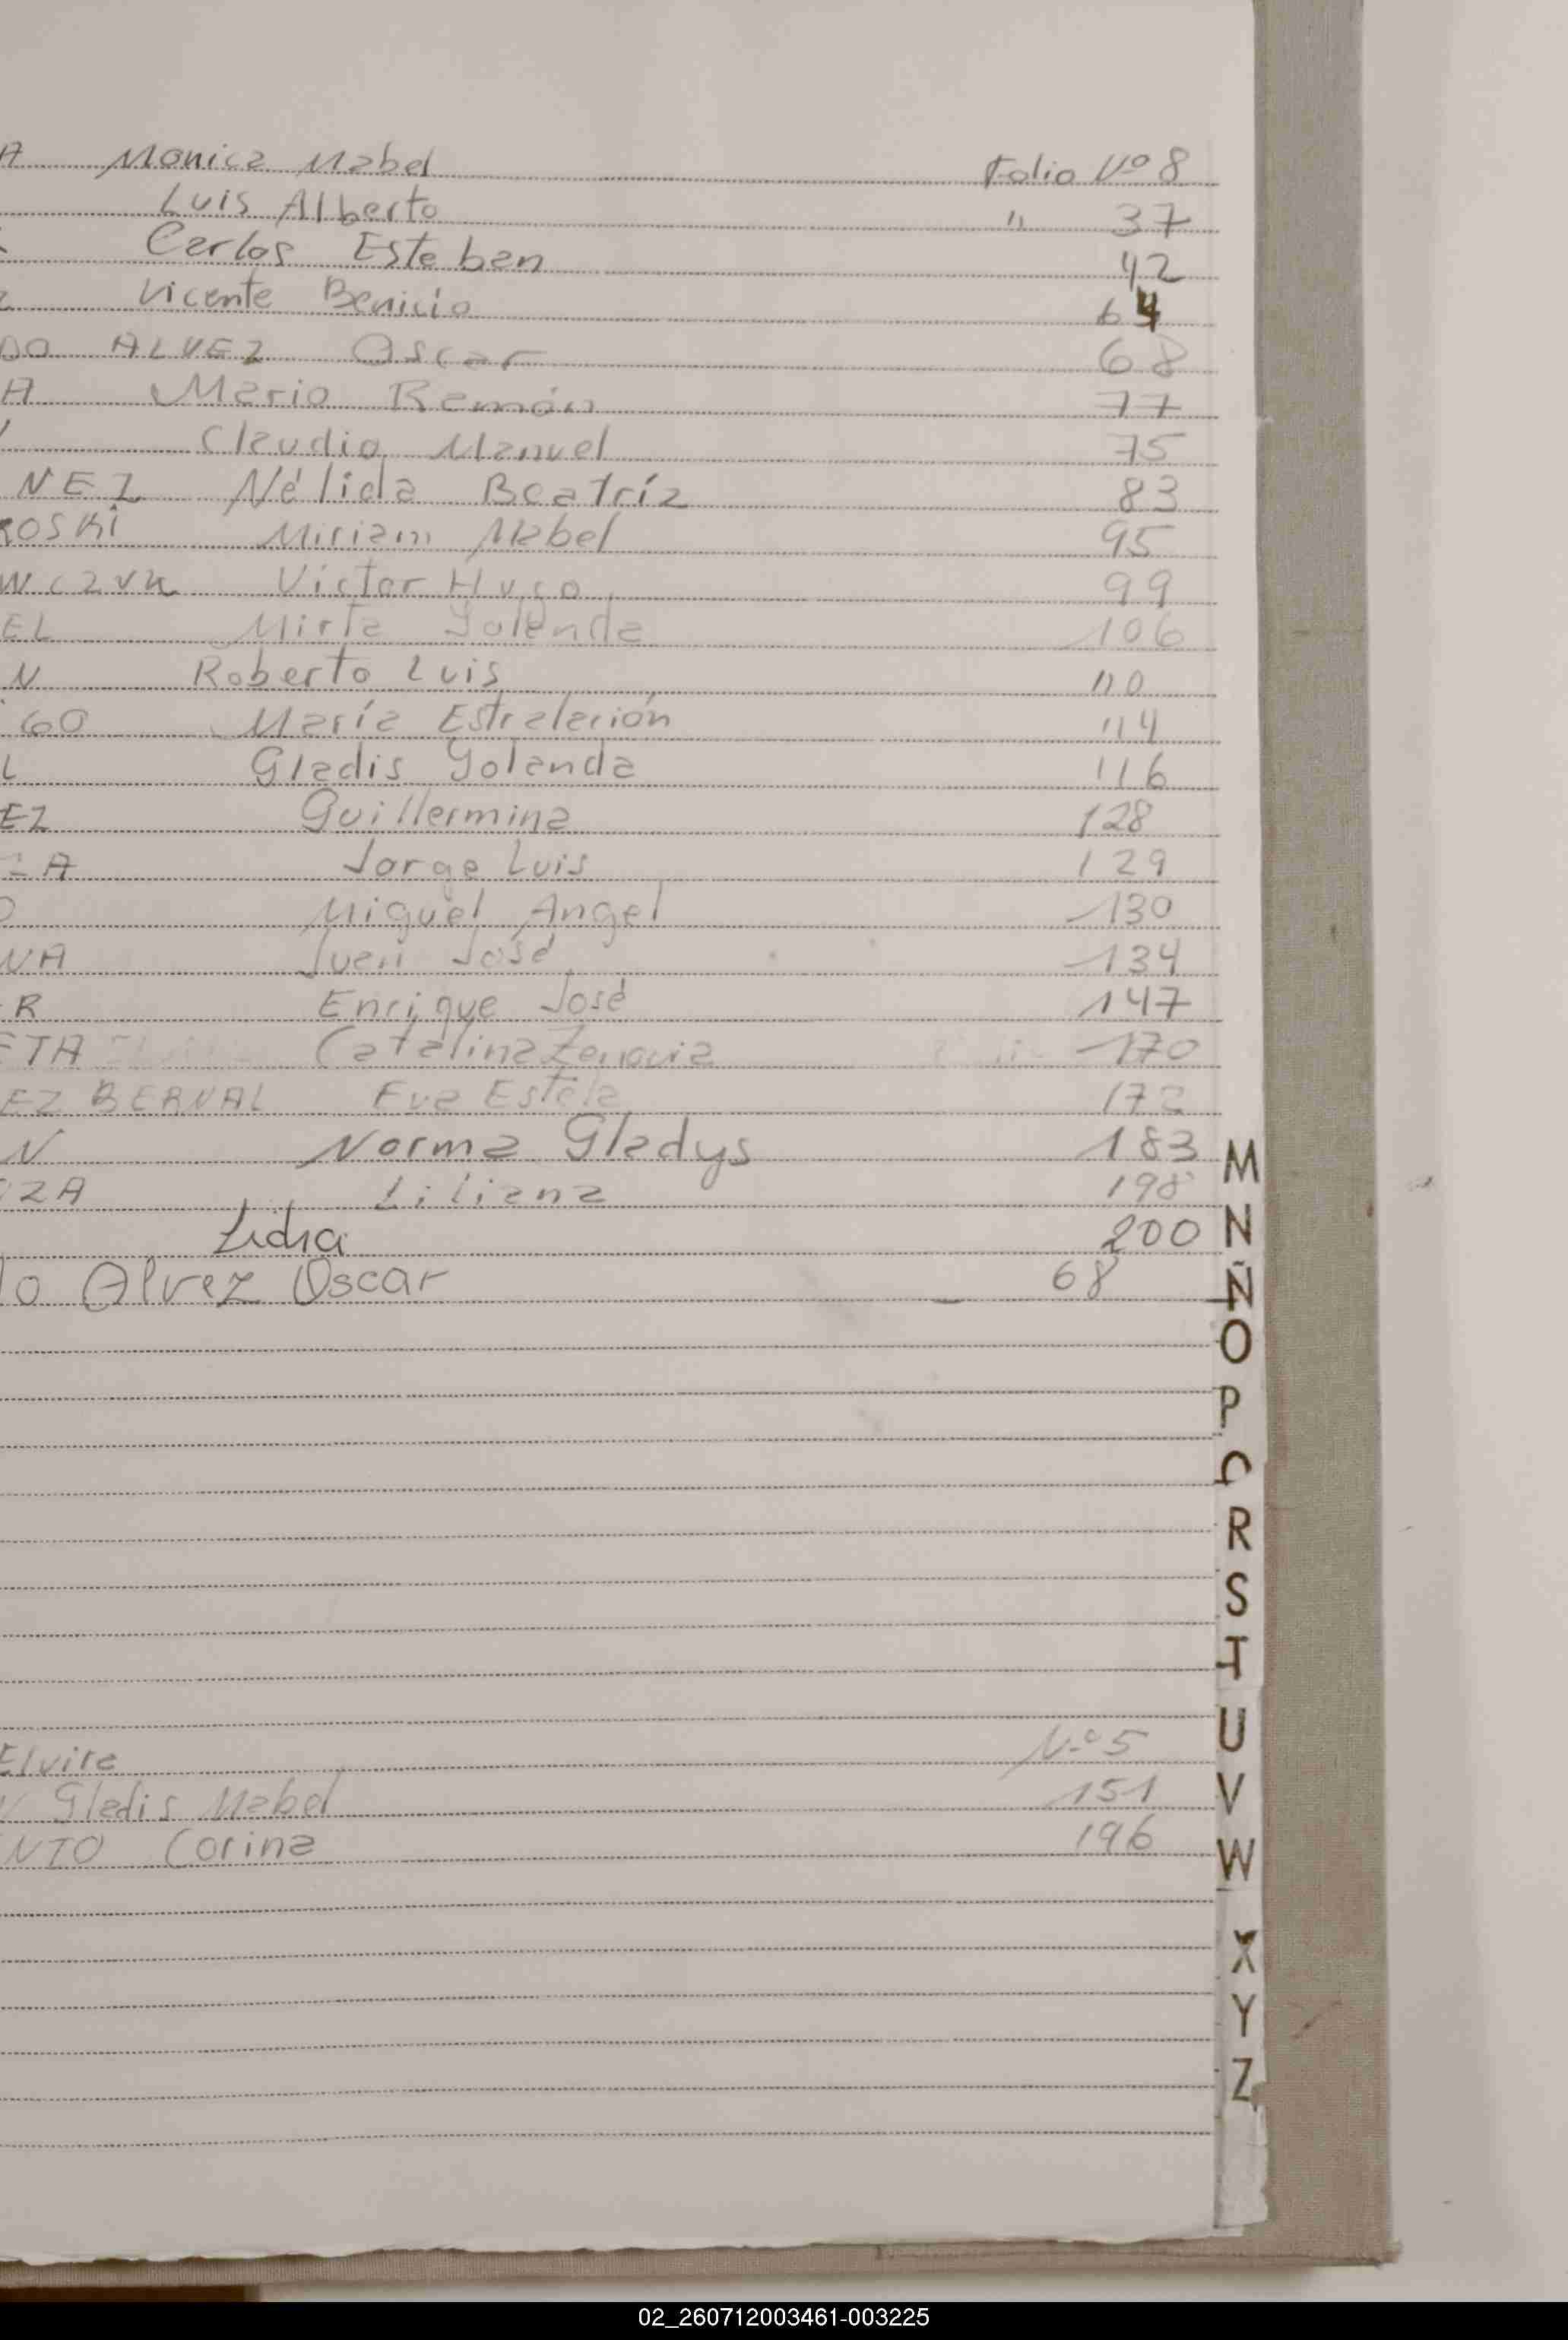 A Monica Mabel Folio Nº 8
Luis Alberto " 37
Carlos Esteban 42
Vicente Benicio 64
DO ALVEZ Oscar 68
A Mario Ramón 77
Claudio Manuel 75
NEZ Nélida Beatríz 83
ROSKI Miriam Mabel 95
WCZUK Victor Hugo 99
EL Mirta Yolanda 106
N Roberto Luis 110
GO María Estrelación 114
L Gladis Yolanda 116
EZ Guillermina 128
ZA Jorge Luis 129
O Miguel Angel 130
NA Juan José 134
R Enrique José 147
ETA Catalina Zenovia 170
EZ BERNAL Eva Estela 172
N Norma Gladys 183
ZA Liliana 198
Lidia 200
do Alvez Oscar 68
Elvira Nº 5
Gladis Mabel 151
NTO Corina 196
M
N
Ñ
O
P
R
S
T
U
V
W
X
Y
Z
02_260712003461-003225